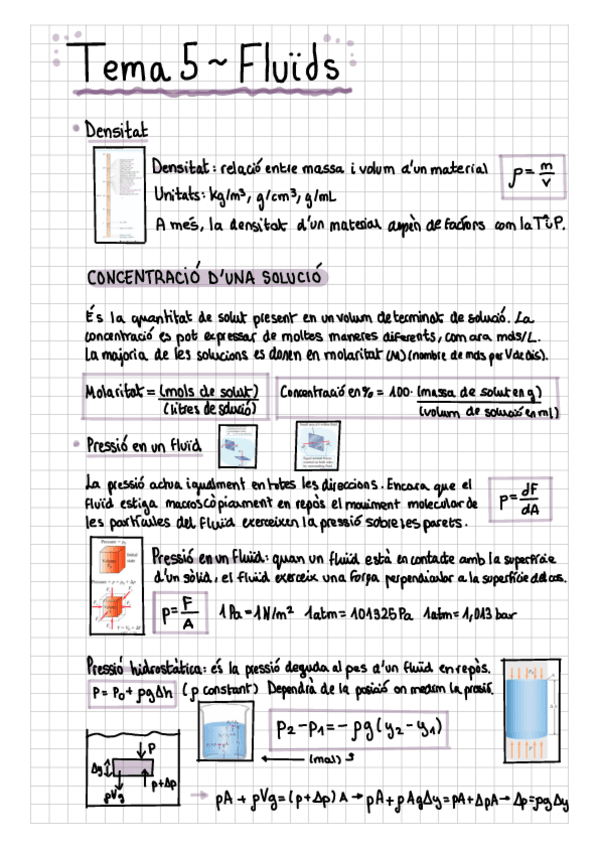 Tema 5 ~ Fluïds
• Densitat
Densitat: relació entre massa i volum d'un material
ρ = m/v
Unitats: kg/m³, g/cm³, g/mL
A més, la densitat d'un material depèn de factors com la T i P.
CONCENTRACIÓ D'UNA SOLUCIÓ
És la quantitat de solut present en un volum determinat de solució. La
concentració es pot expressar de moltes maneres diferents, com ara mols/L.
La majoria de les solucions es donen en molaritat (M) (nombre de mols per V de dis).
Molaritat = (mols de solut) / (litres de solució)
Concentració en % = 100 · (massa de solut en g) / (volum de solució en ml)
• Pressió en un Fluïd
La pressió actua igualment en totes les direccions. Encara que el
fluïd estiga macroscòpicament en repòs el moviment molecular de
les partícules del fluïd exerceixen la pressió sobre les parets.
p = dF/dA
Pressió en un fluïd: quan un fluïd està en contacte amb la superfície
d'un sòlid, el fluïd exerceix una força perpendicular a la superfície del cos.
p = F/A 1 Pa = 1 N/m² 1atm = 101325 Pa 1atm = 1,013 bar
Pressió hidrostàtica: és la pressió deguda al pes d'un fluïd en repòs.
P = P₀ + ρgΔh (ρ constant) Dependrà de la posició on medim la pressió.
P₂ - P₁ = - ρg (y₂ - y₁)
(mal)
P
Δy
ρVg
p+Δp
→ pA + ρVg = (p + Δp) A → pA + ρAgΔy = pA + ΔpA → Δp = ρgΔy